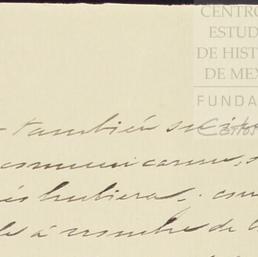 CENTRO
ESTUD
DE HIST
DE MEX
FUNDA
también se
comunicarme, s
hubiera, com
á nombre de l